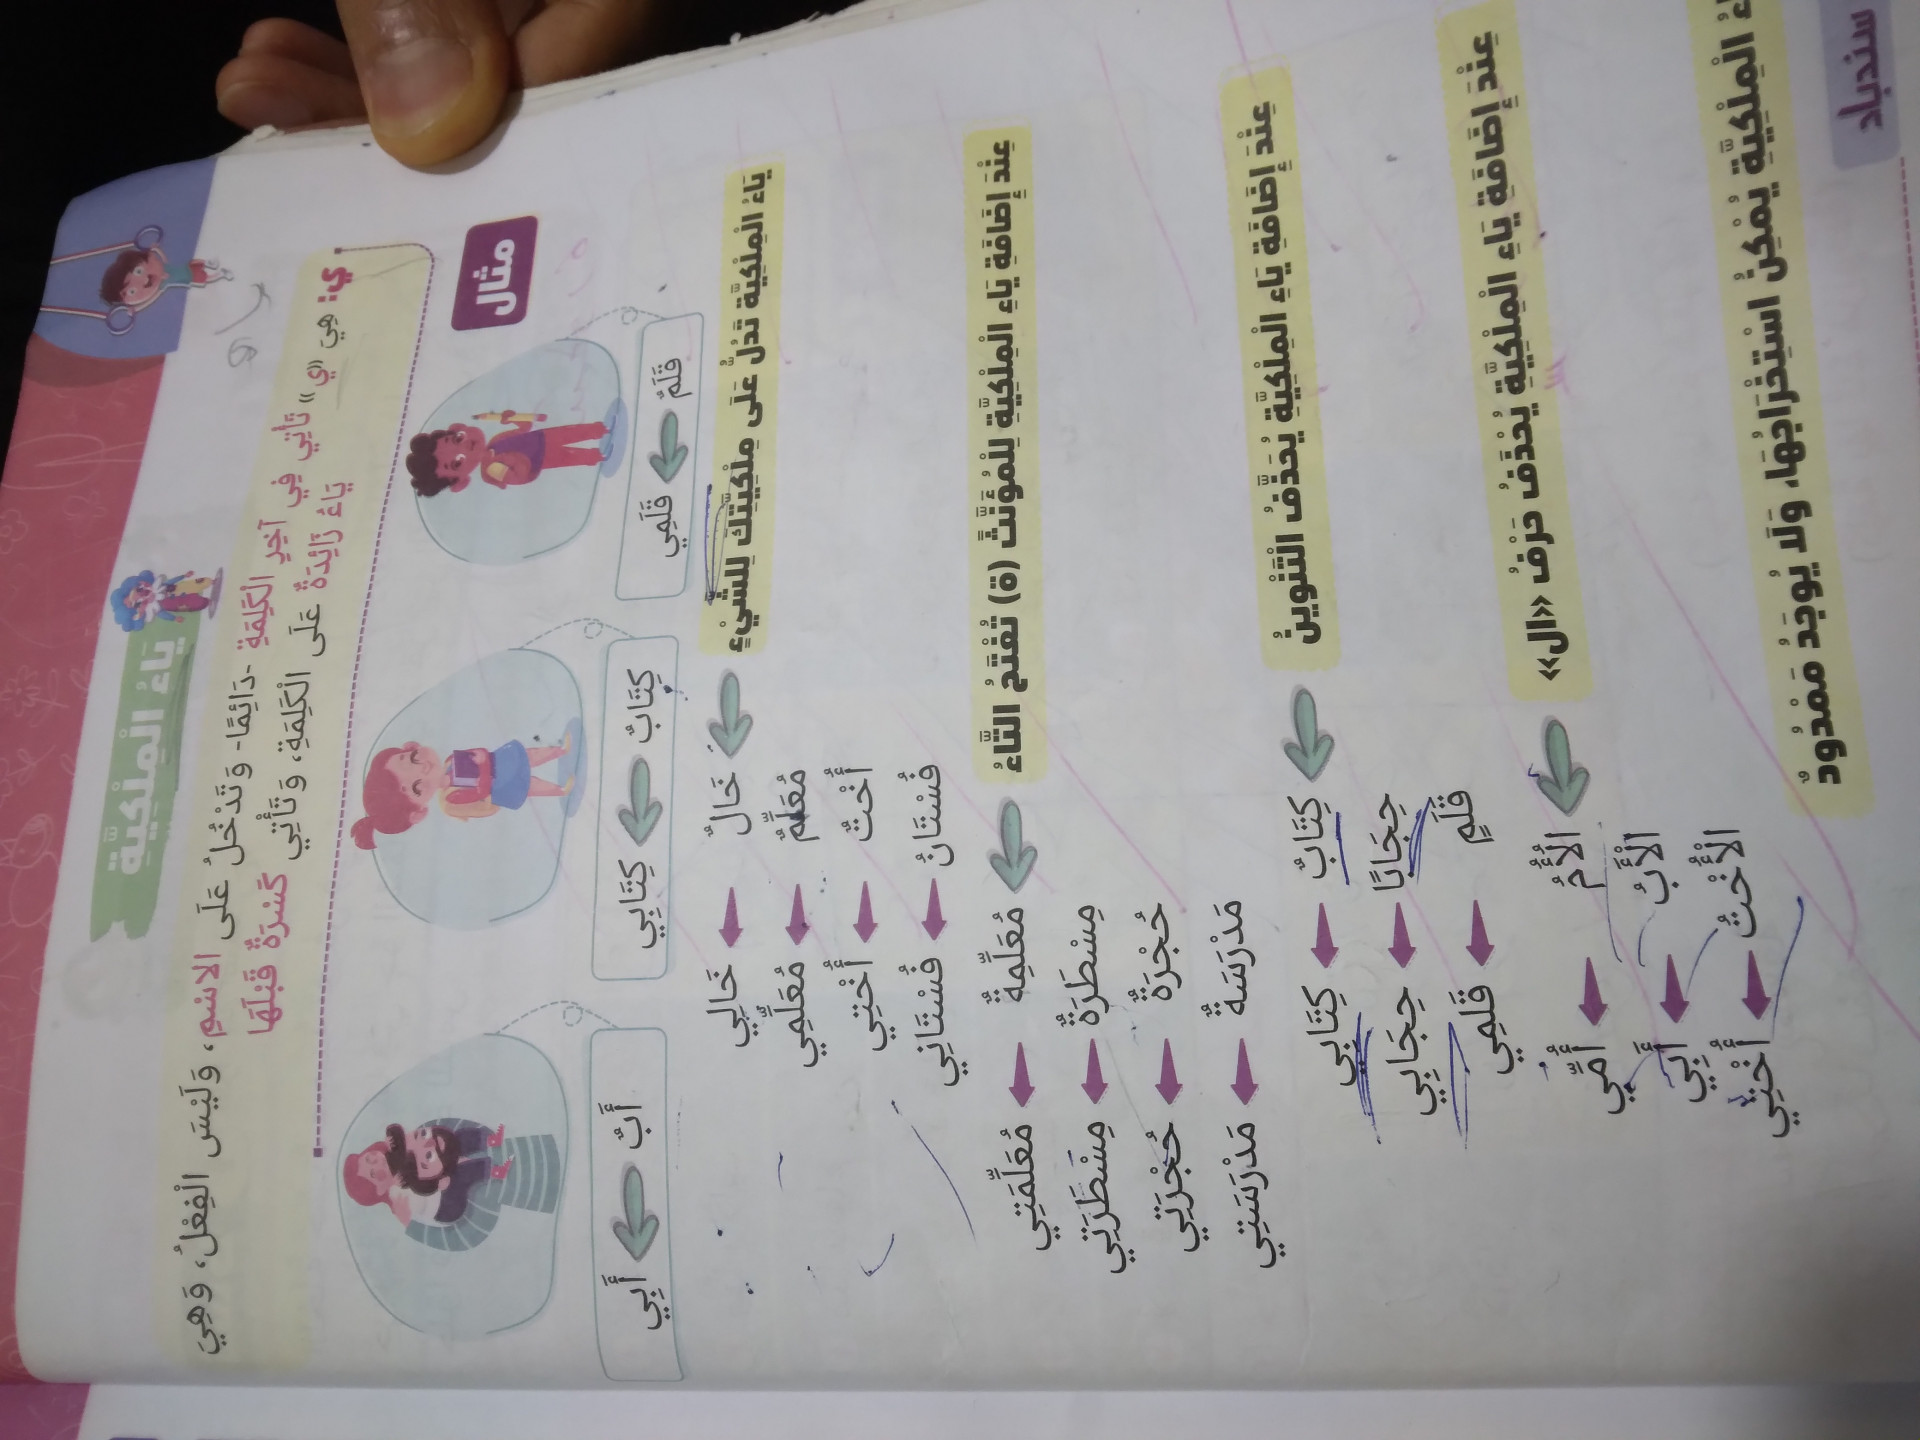 يَاءُ الْمِلْكِيَّةِ
ي: هِيَ «ي» تَأْتِي فِي آخِرِ الْكَلِمَةِ -دَائِمًا- وَتَدْخُلُ عَلَى الاسْمِ، وَلَيْسَ الْفِعْلُ، وَهِيَ
يَاءٌ زَائِدَةٌ عَلَى الْكَلِمَةِ، وَتَأْتِي كَسْرَةٌ قَبْلَهَا
مثال
قَلَمٌ قَلَمِي
كِتَابٌ كِتَابِي
أَبٌ أَبِي
يَاءُ الْمِلْكِيَّةِ تَدُلُّ عَلَى مِلْكِيَّتِكَ لِلشَّيْءِ
خَالٌ خَالِي
مُعَلِّمٌ مُعَلِّمِي
أُخْتٌ أُخْتِي
فُسْتَانٌ فُسْتَانِي
عِنْدَ إِضَافَةِ يَاءِ الْمِلْكِيَّةِ لِلْمُؤَنَّثِ (ة) تُفْتَحُ التَّاءُ
مُعَلِّمَةٌ مُعَلِّمَتِي
مِسْطَرَةٌ مِسْطَرَتِي
حُجْرَةٌ حُجْرَتِي
مَدْرَسَةٌ مَدْرَسَتِي
عِنْدَ إِضَافَةِ يَاءِ الْمِلْكِيَّةِ يُحْذَفُ التَّنْوِينُ
كِتَابٌ كِتَابِي
حِجَابًا حِجَابِي
قَلَمٍ قَلَمِي
عِنْدَ إِضَافَةِ يَاءِ الْمِلْكِيَّةِ يُحْذَفُ حَرْفُ «ال»
الْأُمُّ أُمِّي
الْأَبُ أَبِي
الْأُخْتُ أُخْتِي
الْمِلْكِيَّةِ يُمْكِنُ اسْتِخْرَاجُهَا، وَلَا يُوجَدُ مَمْدُودٌ
سندباد